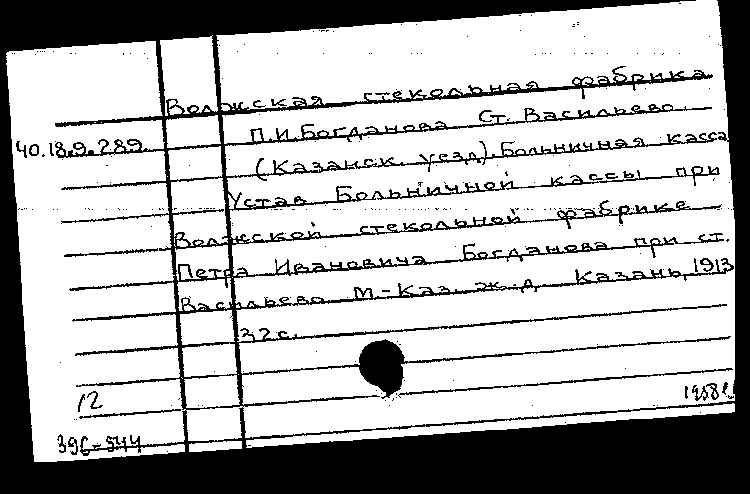 Волжская стекольная фабрика
40.18.9.289. П.И.Богданова Ст. Васильево
(Казанск. уезд). Больничная касса
Устав Больничной кассы при
Волжской стекольной фабрике
Петра Ивановича Богданова при ст.
Васильево М.-Каз. ж.д. Казань, 1913
32 с.
12
1958
396-544